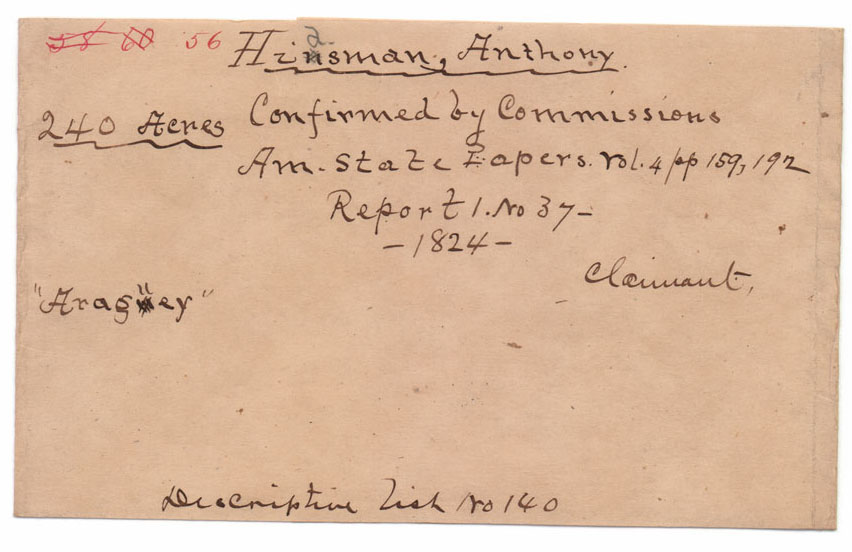 58 60 56 Hinsman, Anthony.
2
240 Acres Confirmed by Commissions
Am. State Papers. Vol. 4 pp 159, 192
Report 1. No 37-
-1824-
Claimant,
"Aragüey"
Descriptive List No 140